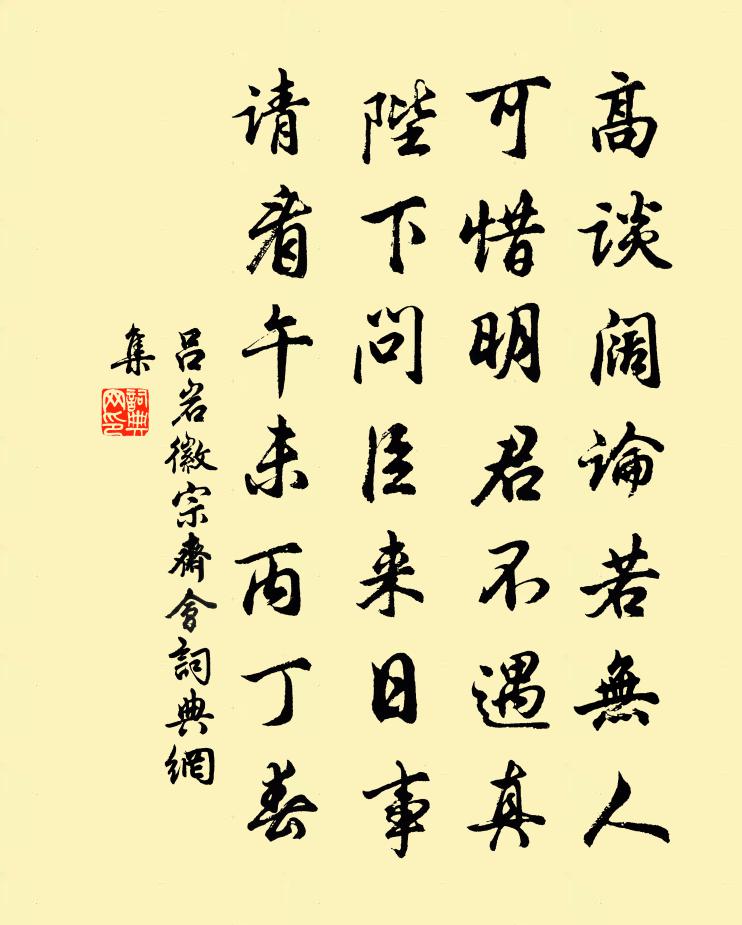 高谈阔論若無人
可惜明君不遇真
陛下问臣来日事
请看午未丙丁春
吕岩徽宗齋會詞典網
集
詞典
网印